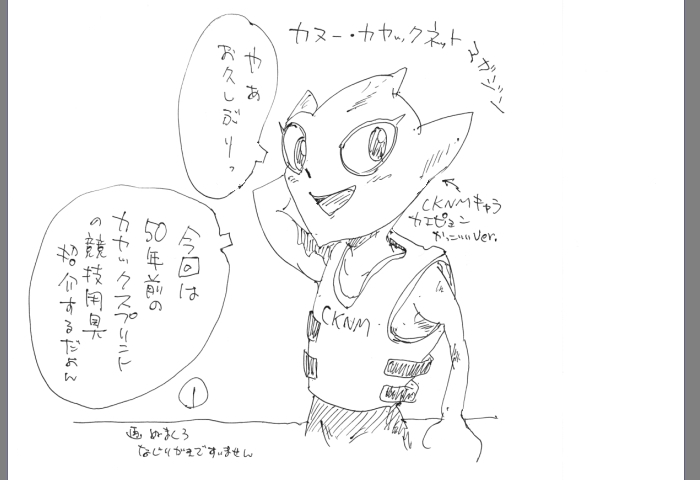 カヌー・カヤックネット
やぁ
お久しぶりっ
CKNMキャラ
カエピョン
かっこいいver.
今回は
50年前の
カヤックスプリント
の競技用具
紹介するだよん
CKNM
1
画 ぬまくろ
なじりがきですいません